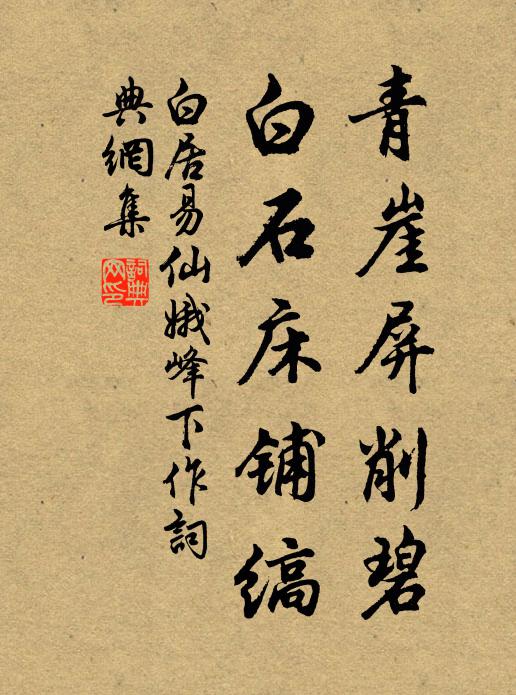 青崖屏削碧
白石床铺缟
白居易仙娥峰下作詞
典網集
詞典網印